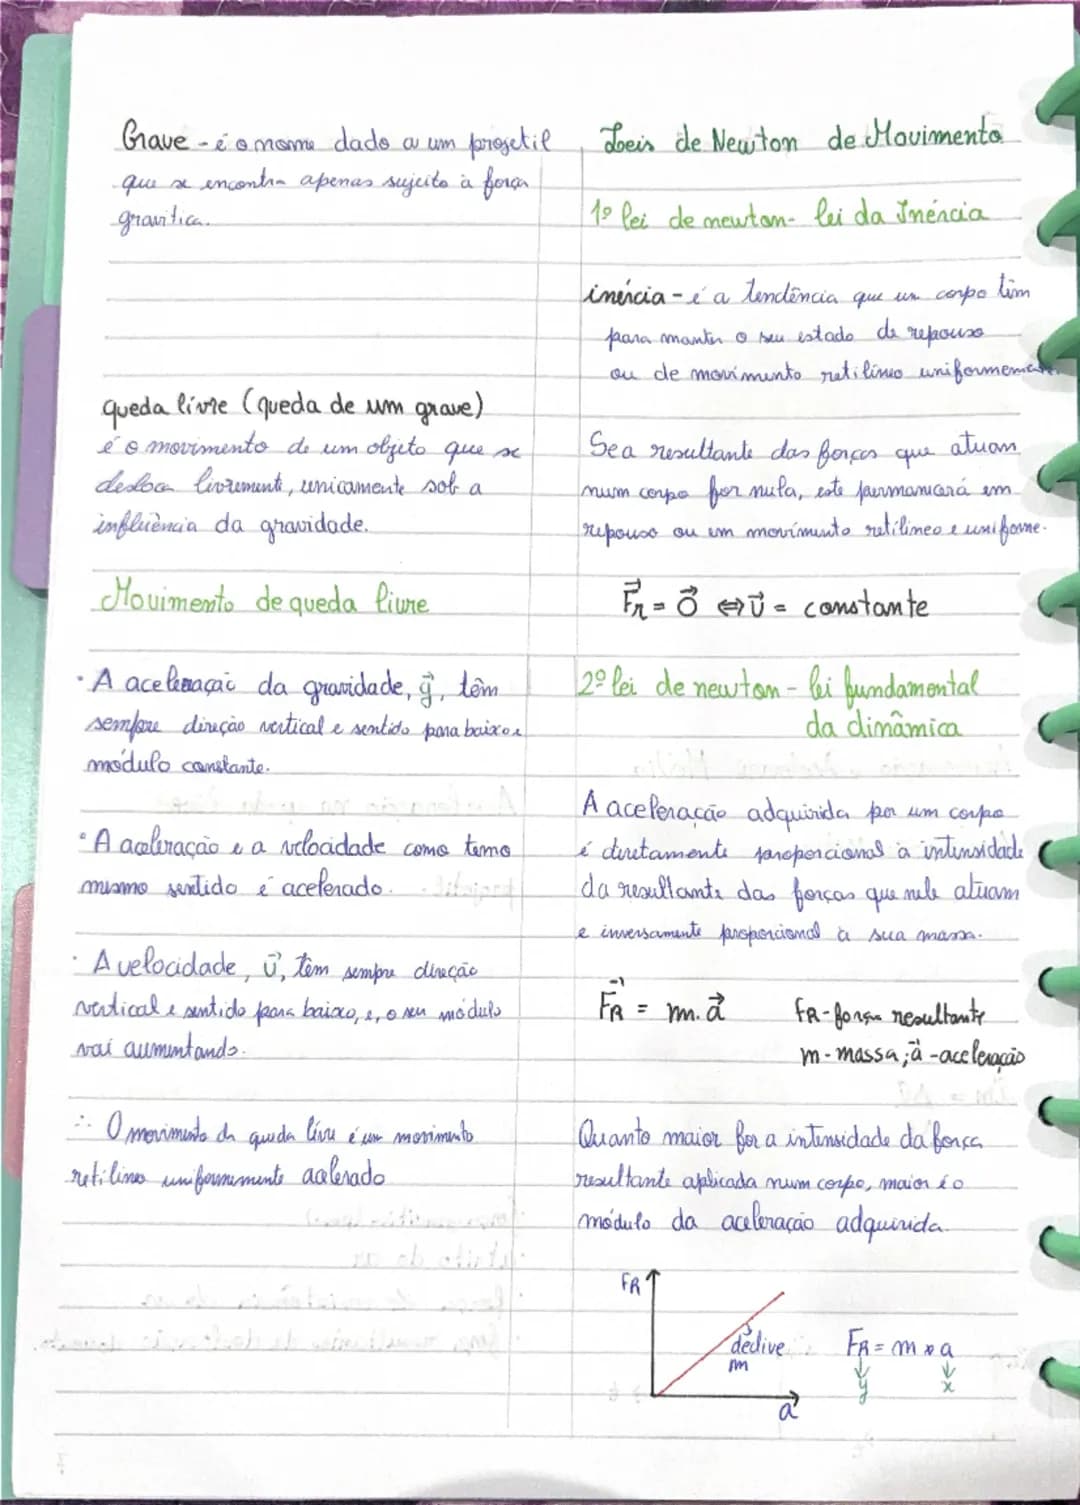 Grave - é o nome dado a um projetil
que se encontra apenas sujeito à força
gravítica.
queda livre (queda de um grave)
é o movimento de um objeto que se
desloca livremente, unicamente sob a
influência da gravidade.
Movimento de queda livre
• A aceleração da gravidade, g⃗, têm
sempre direção vertical e sentido para baixo e
módulo constante.
• A aceleração e a velocidade como temo
mesmo sentido é acelerado.
• A velocidade, v⃗, têm sempre direção
vertical e sentido para baixo, e, o seu módulo
vai aumentando.
∴ O movimento de queda livre é um movimento
retilíneo uniformemente acelerado
Leis de Newton de Movimento
1º lei de newton - lei da Inércia
inércia - é a tendência que um corpo tem
para manter o seu estado de repouso
ou de movimento retilíneo uniformemente
Se a resultante das forças que atuam
num corpo for nula, este permanecerá em
repouso ou em movimento retilíneo e uniforme.
F⃗R = 0⃗ ⇔ v⃗ = constante
2º lei de newton - lei fundamental
da dinâmica
A aceleração adquirida por um corpo
é diretamente proporcional à intensidade
da resultante das forças que nele atuam
e inversamente proporcional à sua massa.
F⃗R = m.a⃗ FR - força resultante
m - massa; a⃗ - aceleração
Quanto maior for a intensidade da força
resultante aplicada num corpo, maior é o
módulo da aceleração adquirida.
FR
declive
m
a
FR = m × a
y x